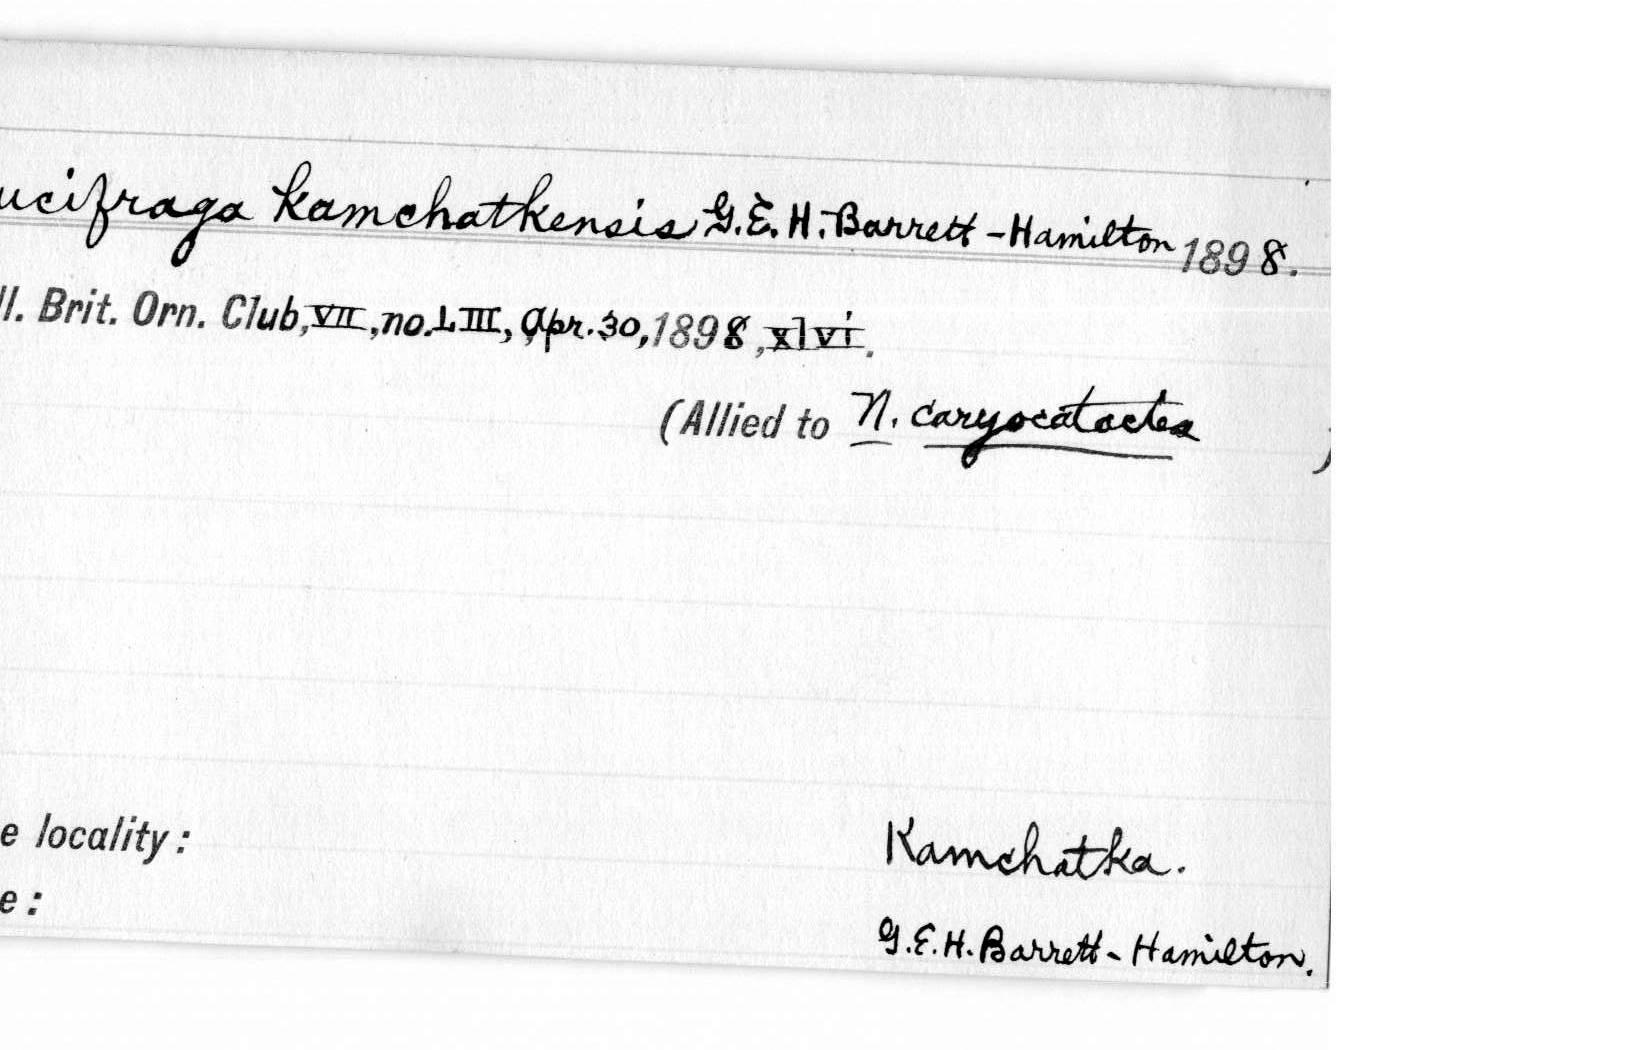 ucifraga kamchatkensis G.E.H. Barrett-Hamilton 1898.
ll. Brit. Orn. Club, VII, no. LIII, Apr. 30, 1898, xlvi.
(Allied to N. caryocatactes )
e locality: Kamchatka.
e: G.E.H. Barrett-Hamilton.